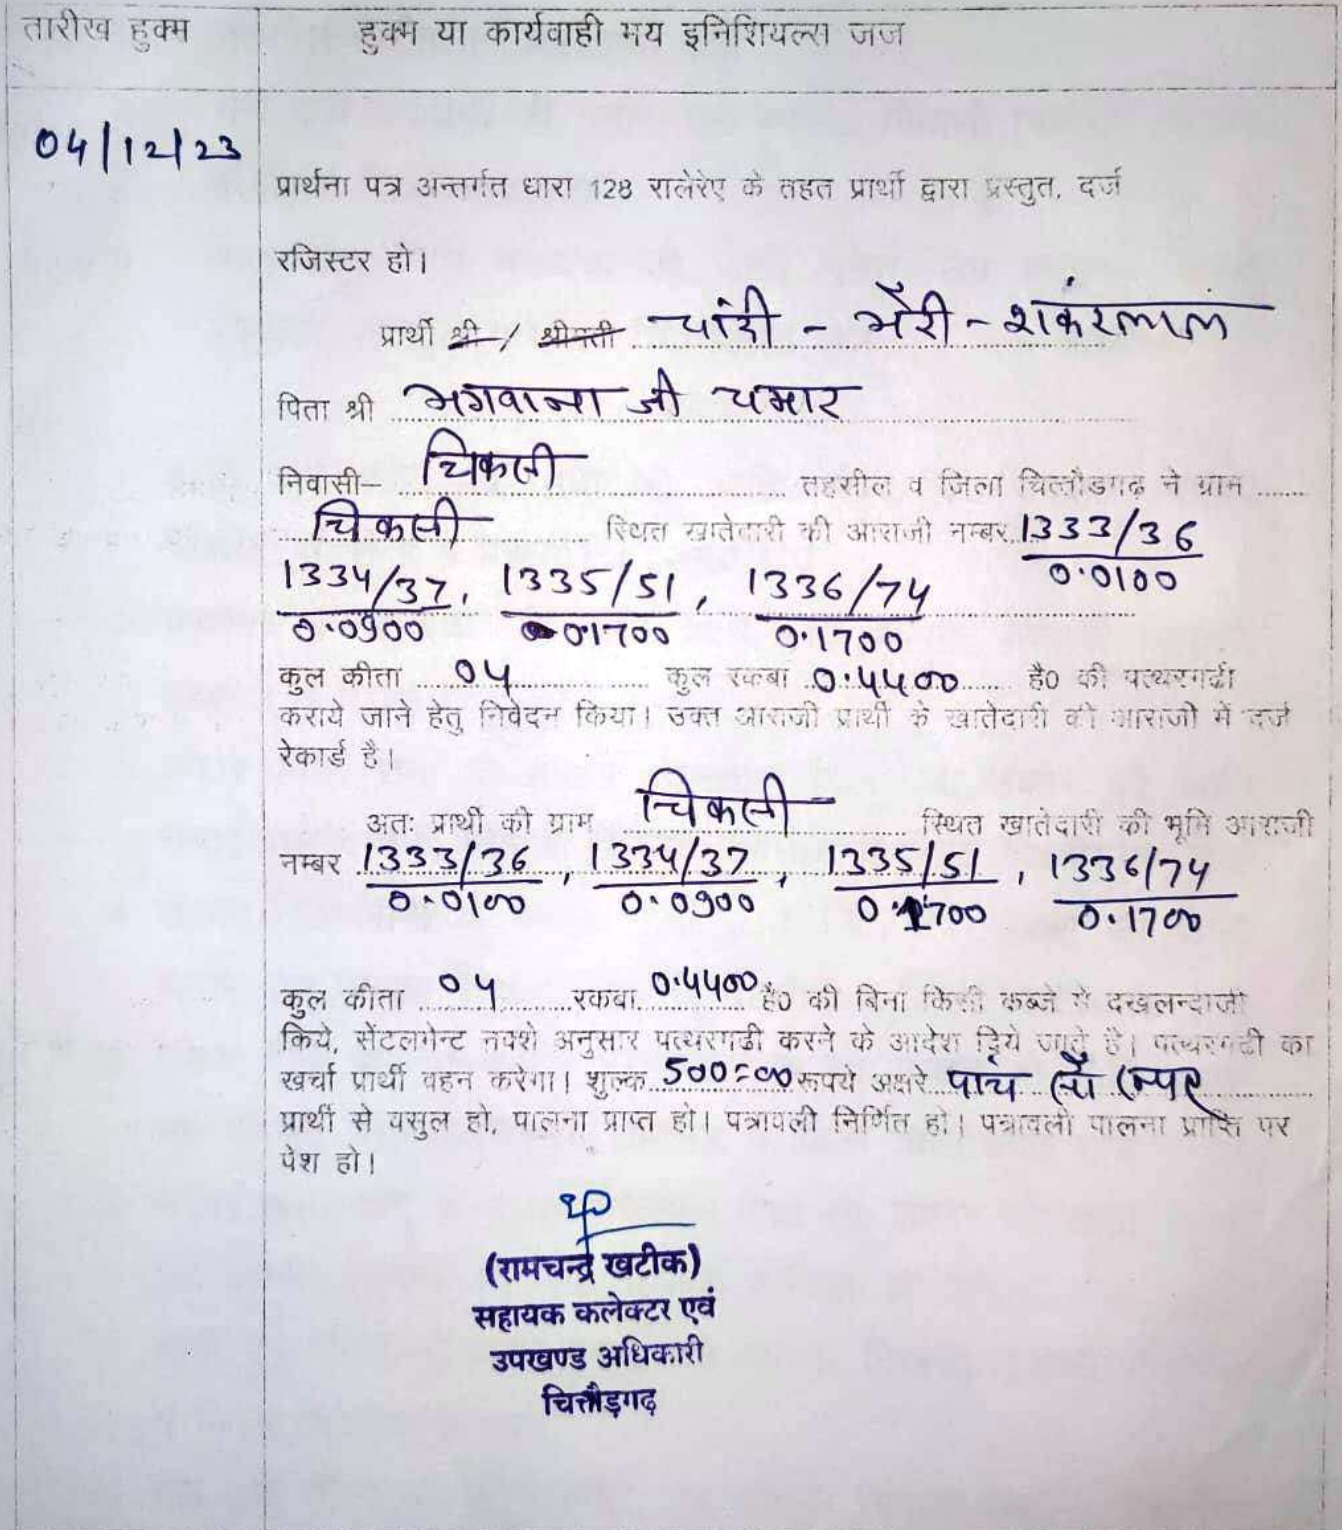 तारीख हुक्म
हुक्म या कार्यवाही मय इनिशियल्स जज
04/12/23
प्रार्थना पत्र अन्तर्गत धारा 128 रालेरेए के तहत प्रार्थी द्वारा प्रस्तुत, दर्ज
रजिस्टर हो।
प्रार्थी श्री / श्रीमती चांदी - भैरी - शकंरलाल
पिता श्री भगवाना जी चमार
निवासी– चिकसी तहसील व जिला चित्तौडगढ़ ने ग्राम
चिकसी स्थित खातेदारी की आराजी नम्बर 1333/36
0.0100
1334/37, 1335/51, 1336/74
0.0900 0.1700 0.1700
कुल कीता 04 कुल रकबा 0.4400 है0 की पत्थरगढी
कराये जाने हेतु निवेदन किया। उक्त आराजी प्रार्थी के खातेदारी की आराजी में दर्ज
रेकार्ड है।
अतः प्रार्थी की ग्राम चिकसी स्थित खातेदारी की भूमि आराजी
नम्बर 1333/36, 1334/37, 1335/51, 1336/74
0.0100 0.0900 0.1700 0.1700
कुल कीता 04 रकबा 0.4400 है0 की बिना किसी कब्जे में दखलन्दाजी
किये, सेंटलमेन्ट नक्शे अनुसार पत्थरगढी करने के आदेश दिये जाते है। पत्थरगढी का
खर्चा प्रार्थी वहन करेगा। शुल्क 500=00 रूपये अक्षरे पांच सौ रूपए
प्रार्थी से वसुल हो, पालना प्राप्त हो। पत्रावली निर्णित हो। पत्रावली पालना प्राप्ति पर
पेश हो।
(रामचन्द्र खटीक)
सहायक कलेक्टर एवं
उपखण्ड अधिकारी
चित्तौड़गढ़